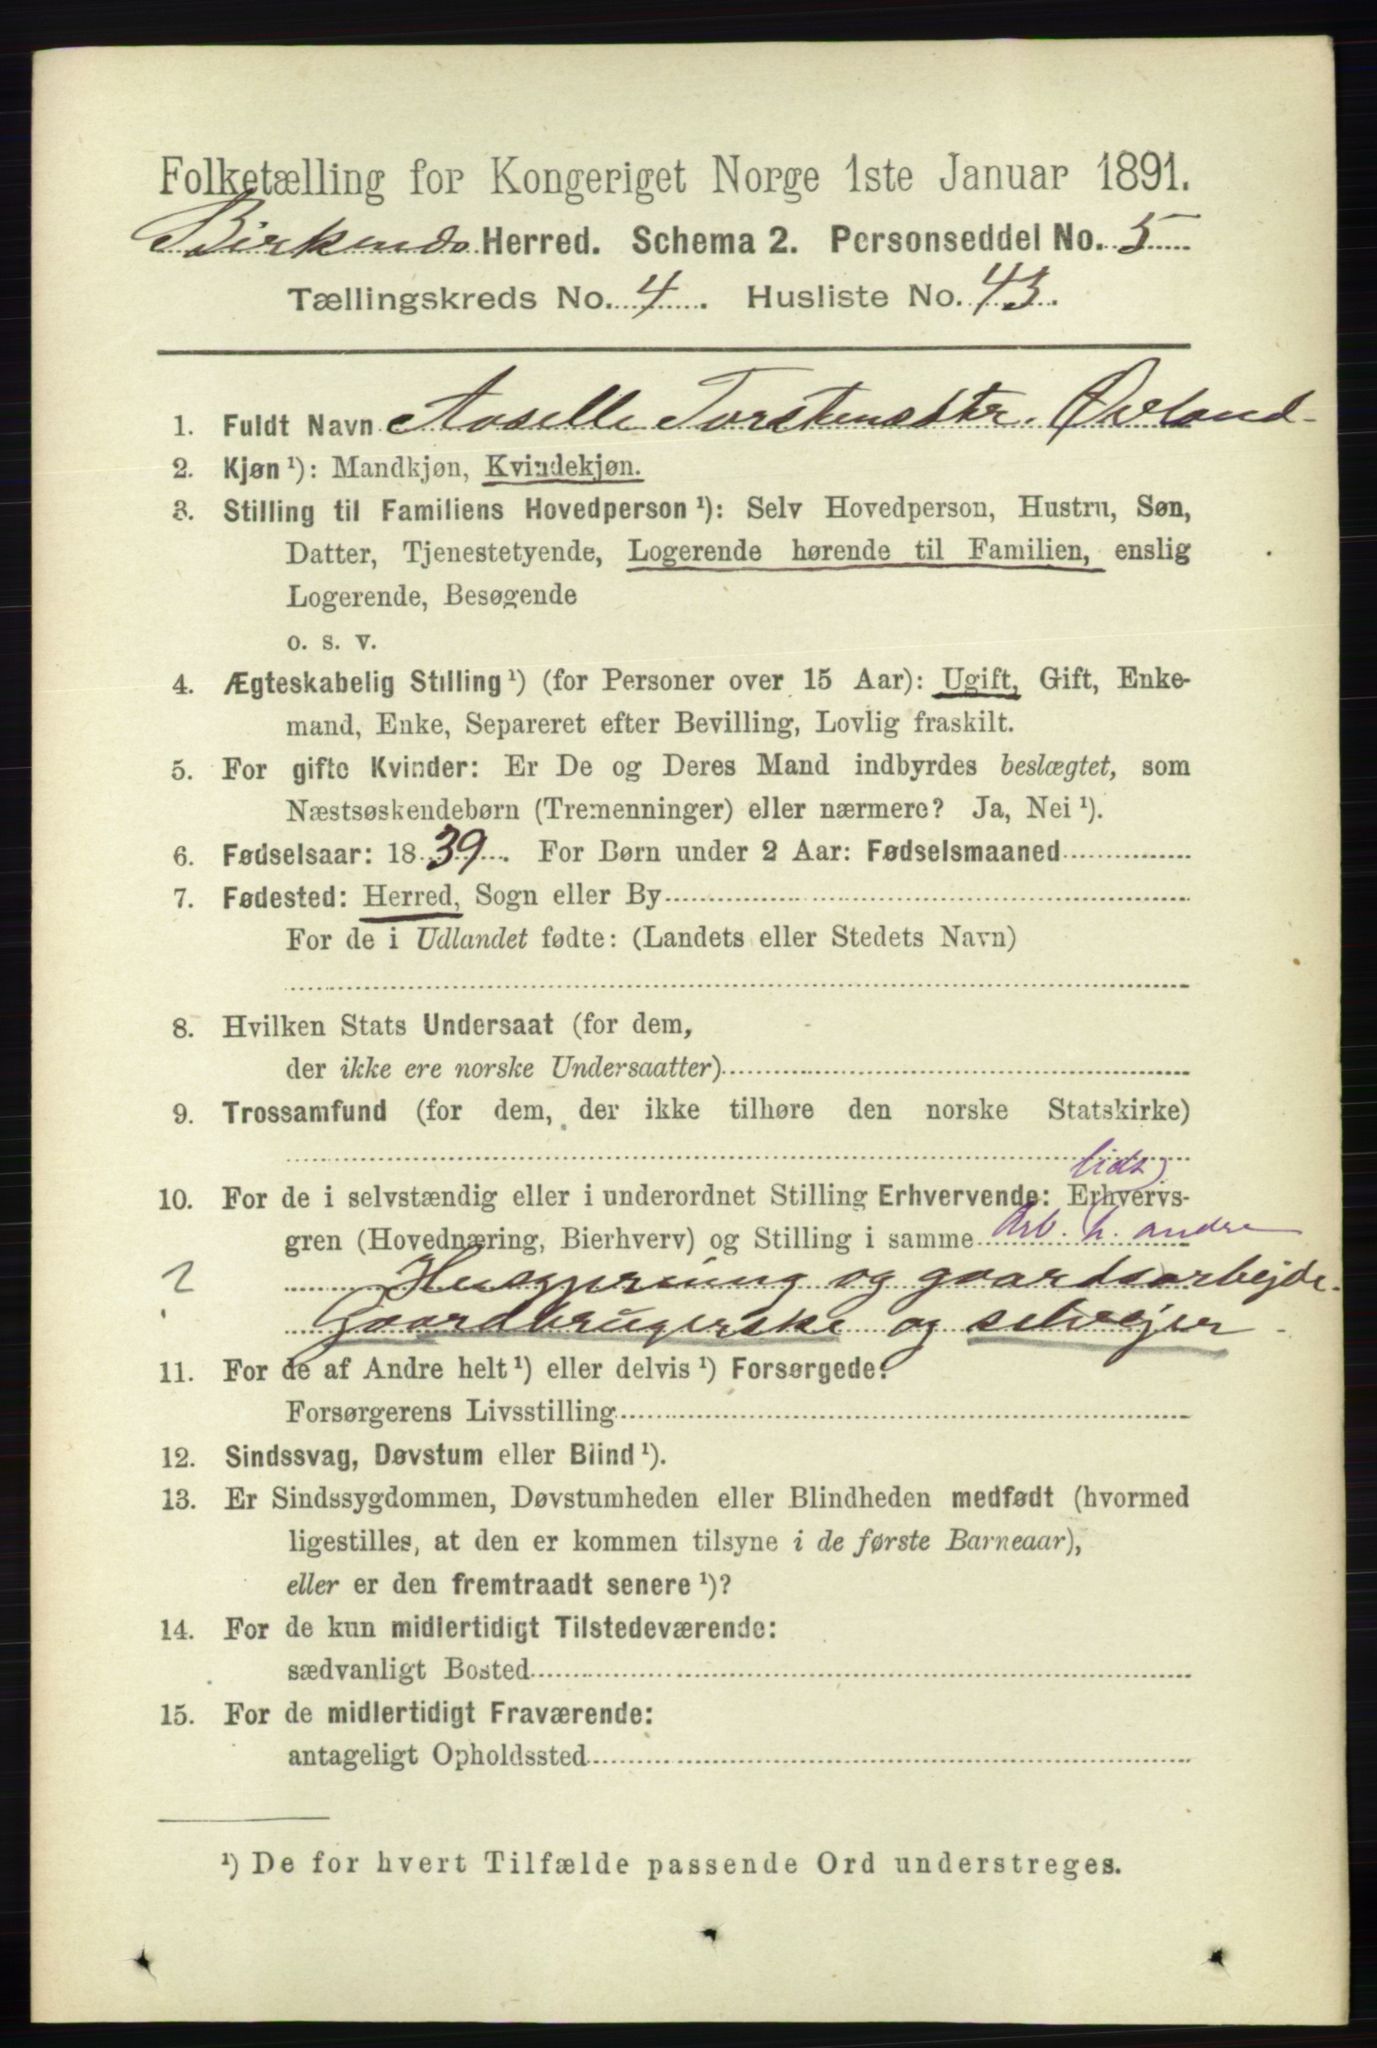 Folketælling for Kongeriget Norge 1ste Januar 1891.
Birkenæs Herred. Schema 2. Personseddel No. 5
Tællingskreds No. 4. Husliste No. 43.
1. Fuldt Navn Aaselle Torstensdtr. Øvland
2. Kjøn ¹): Mandkjøn, Kvindekjøn.
3. Stilling til Familiens Hovedperson ¹): Selv Hovedperson, Hustru, Søn,
Datter, Tjenestetyende, Logerende hørende til Familien, enslig
Logerende, Besøgende
o. s. v.
4. Ægteskabelig Stilling ¹) (for Personer over 15 Aar): Ugift, Gift, Enke-
mand, Enke, Separeret efter Bevilling, Lovlig fraskilt.
5. For gifte Kvinder: Er De og Deres Mand indbyrdes beslægtet, som
Næstsøskendebørn (Tremenninger) eller nærmere? Ja, Nei ¹).
6. Fødselsaar: 1839. For Børn under 2 Aar: Fødselsmaaned
7. Fødested: Herred, Sogn eller By
For de i Udlandet fødte: (Landets eller Stedets Navn)
8. Hvilken Stats Undersaat (for dem,
der ikke ere norske Undersaatter)
9. Trossamfund (for dem, der ikke tilhøre den norske Statskirke)
lids
10. For de i selvstændig eller i underordnet Stilling Erhvervende: Erhvervs-
gren (Hovednæring, Bierhverv) og Stilling i samme Arb. h. andre
? Husgjerning og gaardsarbejde.
Gaardbrugerske og selvejer.
11. For de af Andre helt ¹) eller delvis ¹) Forsørgede:
Forsørgerens Livsstilling
12. Sindssvag, Døvstum eller Blind ¹).
13. Er Sindssygdommen, Døvstumheden eller Blindheden medfødt (hvormed
ligestilles, at den er kommen tilsyne i de første Barneaar),
eller er den fremtraadt senere ¹)?
14. For de kun midlertidigt Tilstedeværende:
sædvanligt Bosted
15. For de midlertidigt Fraværende:
antageligt Opholdssted
¹) De for hvert Tilfælde passende Ord understreges.